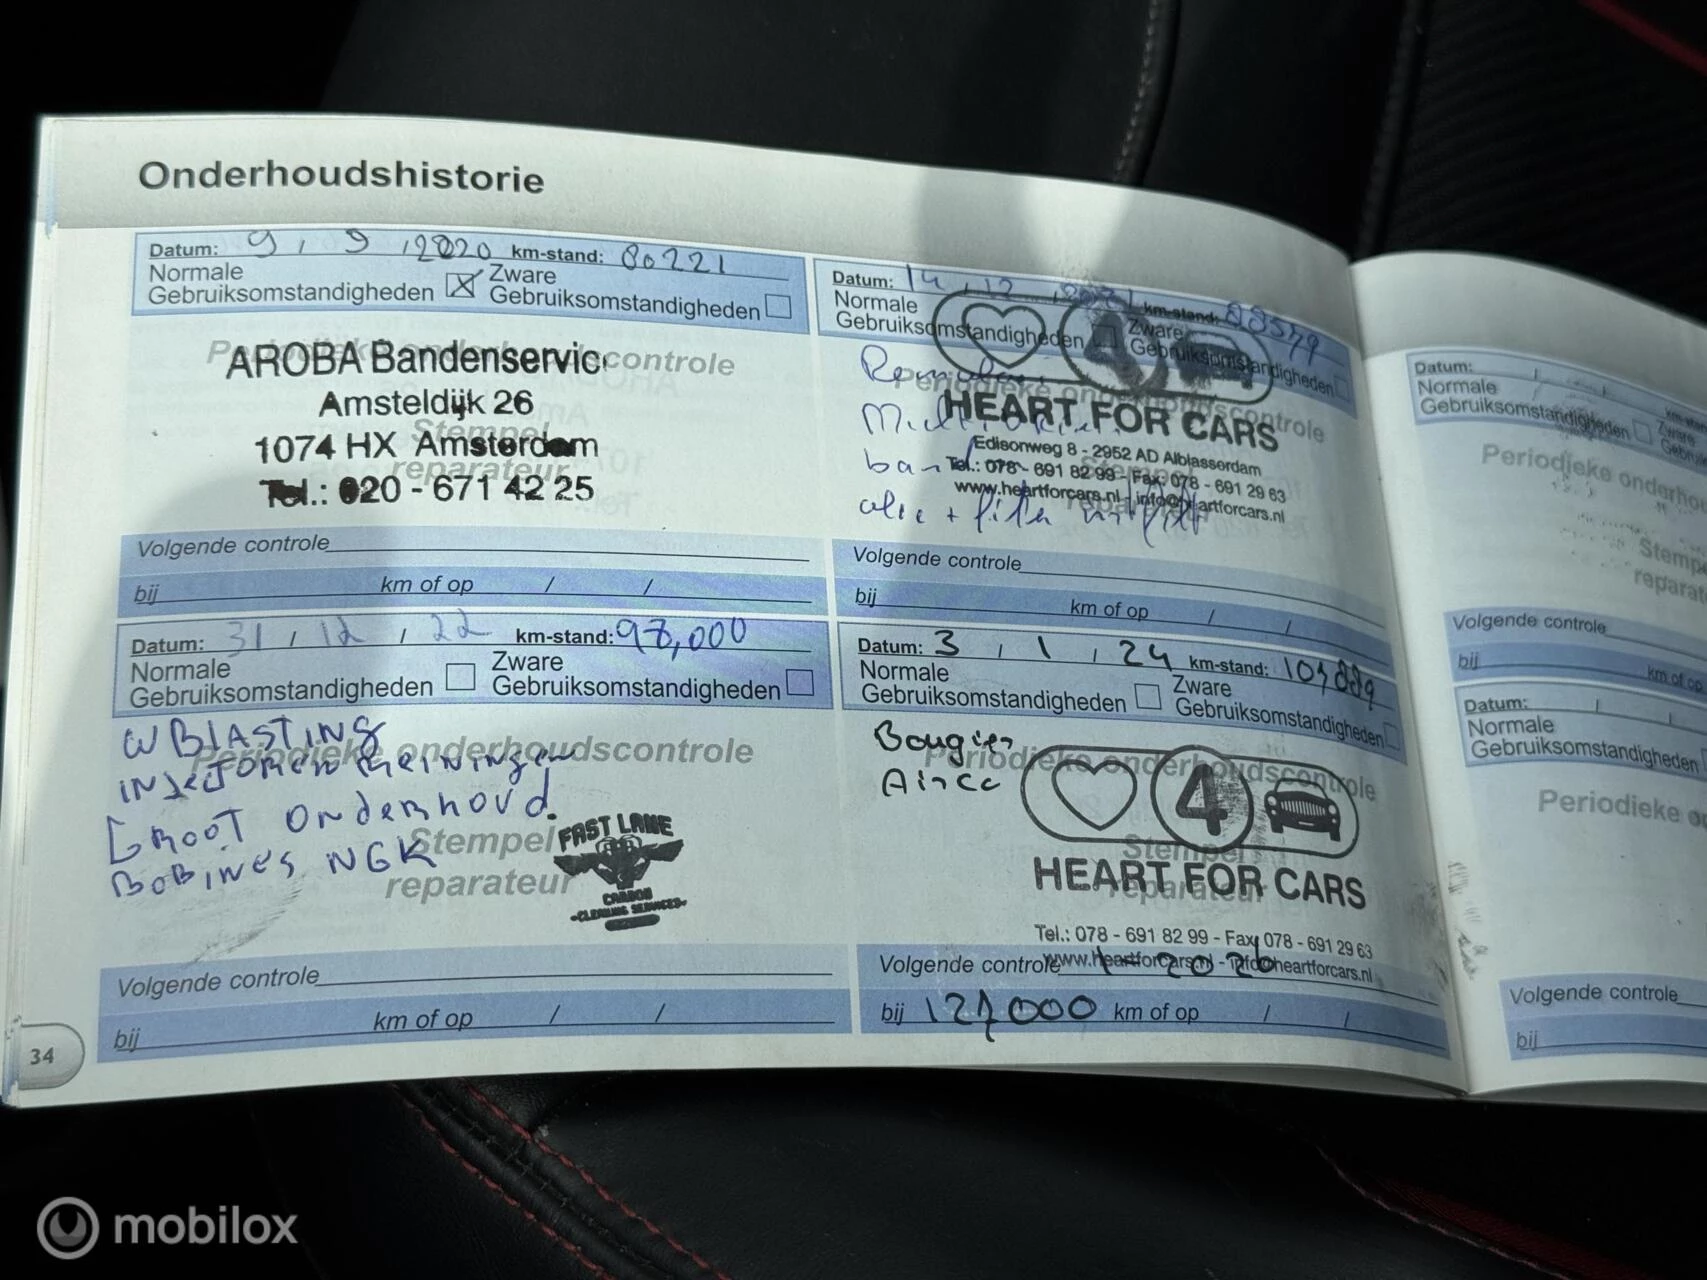 Onderhoudshistorie
Datum: 9 , 9 , 2020 km-stand: 80221
Normale
Gebruiksomstandigheden
Zware
Gebruiksomstandigheden
Periodieke onderhoudscontrole
AROBA Bandenservic
Amsteldijk 26
Stempel
1074 HX Amsterdam
reparateur
Tel.: 020 - 671 42 25
Volgende controle
bij km of op / /
Datum: 14 , 12 , 2021 km-stand: 88579
Normale
Gebruiksomstandigheden
Zware
Gebruiksomstandigheden
4
Periodieke onderhoudscontrole
HEART FOR CARS
Edisonweg 8 - 2952 AD Alblasserdam
Tel.: 078 - 691 82 99 - Fax: 078 - 691 29 63
www.heartforcars.nl - info@heartforcars.nl
olie + filter
Volgende controle
bij km of op / /
Datum: 31 / 12 / 22 km-stand: 98,000
Normale
Gebruiksomstandigheden
Zware
Gebruiksomstandigheden
WBLASTING
Periodieke onderhoudscontrole
INJECTOREN REINIGEN
GROOT ONDERHOUD.
Stempel
BOBINES NGK
reparateur
FAST LANE
CARBON
-CLEANING SERVICES-
Volgende controle
bij km of op / /
Datum: 3 , 1 , 24 km-stand:
Normale
Gebruiksomstandigheden
Zware
Gebruiksomstandigheden
Bougies
Airco
Periodieke onderhoudscontrole
4
Stempel
HEART FOR CARS
reparateur
Tel.: 078 - 691 82 99 - Fax: 078 - 691 29 63
www.heartforcars.nl - info@heartforcars.nl
Volgende controle 1 - 2026
bij 127000 km of op / /
34
Datum: / /
Normale
Gebruiksomstandigheden
Periodieke
Volgende controle
bij km of op
Datum: / /
Normale
Gebruiksomstandigheden
Periodieke
Volgende controle
bij
mobilox